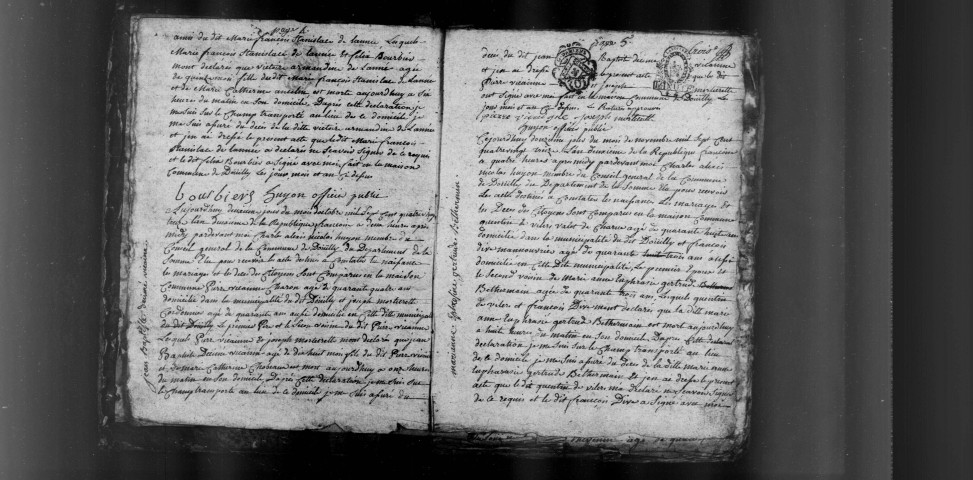 page 4
amis du dit Marie françois Stanislas de lannee Lequel
Marie françois Stanislas de lannee et felix Bourbier
mont declarés que victoire armandine de Lanne agée
de quinze mois fille du dit Marie françois Stanislas de Lanne
et de Marie Catherine ancelin est morte aujourdhuy a six
heures du matin en son domicile Daprés cette declaration je
me suis sur le Champ transporté au lieu de ce domicile je
me suis assuré du decés de la ditte victoire armandine de Lanne
et jen ai dressé le present acte que le dit Marie françois
Stanislas de lannee a declarés ne scavoir signé de ce requis
et le dit felix Bourbier a signé avec moi fait en la maison
Commune de Douilly Les jour mois et an Ci dessus
bourbiers huyon officier public
aujourdhuy deuxieme jour du mois doctobre mil sept cent quatre vingt
treize Lan deuxieme de la Republique francoise a deux heures aprés
midy pardevant moi Charle alexis nicolas huyon membre du
Conseil general de la Commune de Douilly du Departement de la
Somme Elu pour recevoir les actes destinés a Constater les naissances
le mariage et le decés des Citoyen sont Comparus en la maison
Commune Pierre vicainne Charon agé de quarante quatre ans
domicilié dans la municipalité du dit Douilly et joseph morterette
Cordonnier agé de quarante ans aussi domicilié en Cette ditte municipalité
du dit Douilly Le premier Pere et le second voisin du dit Pierre vicainne
Lequel Pierre vicainne et joseph morterette mont declarés que jean
Baptiste vicainne agé de dix huit mois fils du dit Pierre vicainne
et de Marie Catherine est mort aujourdhuy a onze heures
du matin en son domicile Daprés Cette declaration je me suis sur
le Champ transporté au lieu de ce domicile je me suis assuré du
jean Baptiste vicainne
page 5
decés du dit jean Baptiste vicainne
et jen ai dressé le present acte que le dit
Pierre vicainne et joseph morterette
ont signé avec moi fait en la maison Commune de Douilly Les
jour mois et an Ci dessus
huyon officier public
aujourdhuy jour du mois de novembre mil sept Cent
quatrevingt treize Lan deuxieme de la Republique francoise
a quatre heures aprés midy pardevant moi Charle alexis
nicolas huyon membre du Conseil general de la Commune
de Douilly du Departement de la Somme Elu pour recevoir
Les actes destinés a Constater les naissances Les mariage et
les Decés des Citoyen sont Comparus en la maison Commune
quentin de vilers valet de Charue agé de quarante huit ans
domicilié dans la municipalité du dit Douilly et francois
Dive manouvrier agé de quarante trois ans aussi
domicilié en Cette ditte municipalité Le premier Epoux et
le second voisin de Marie anne Euphrasie gertrude
Bethermain agée de quarante trois ans Lequel quentin
de vilers et francois Dive mont declarés que la ditte marie
anne Euphrasie gertrude Bethermain est mort aujourdhuy
a huit heures du matin en son domicile Daprés Cette
declaration je me suis sur le Champ transporté au lieu
de ce domicile je me suis assuré du decés de la ditte marie anne
Euphrasie gertrude Bethermain et jen ai dressé le present
acte que le dit quentin de vilers ma declaré ne scavoir signer
de ce requis et le dit francois Dive a signé avec moi
marianne Euphrasie gertrude Bethermain